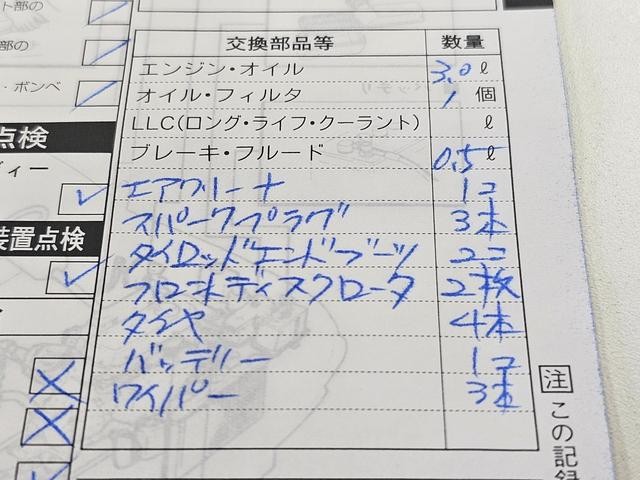 ト部の
部の
・ボンベ
点検
ィー
装置点検
交換部品等 数量
エンジン・オイル 3.0ℓ
オイル・フィルタ 1個
LLC(ロング・ライフ・クーラント) ℓ
ブレーキ・フルード 0.5ℓ
エアクリーナ 1コ
スパークプラグ 3本
タイロッドエンドブーツ 2コ
フロントディスクロータ 2枚
タイヤ 4本
バッテリー 1コ
ワイパー 3本
注
この記録